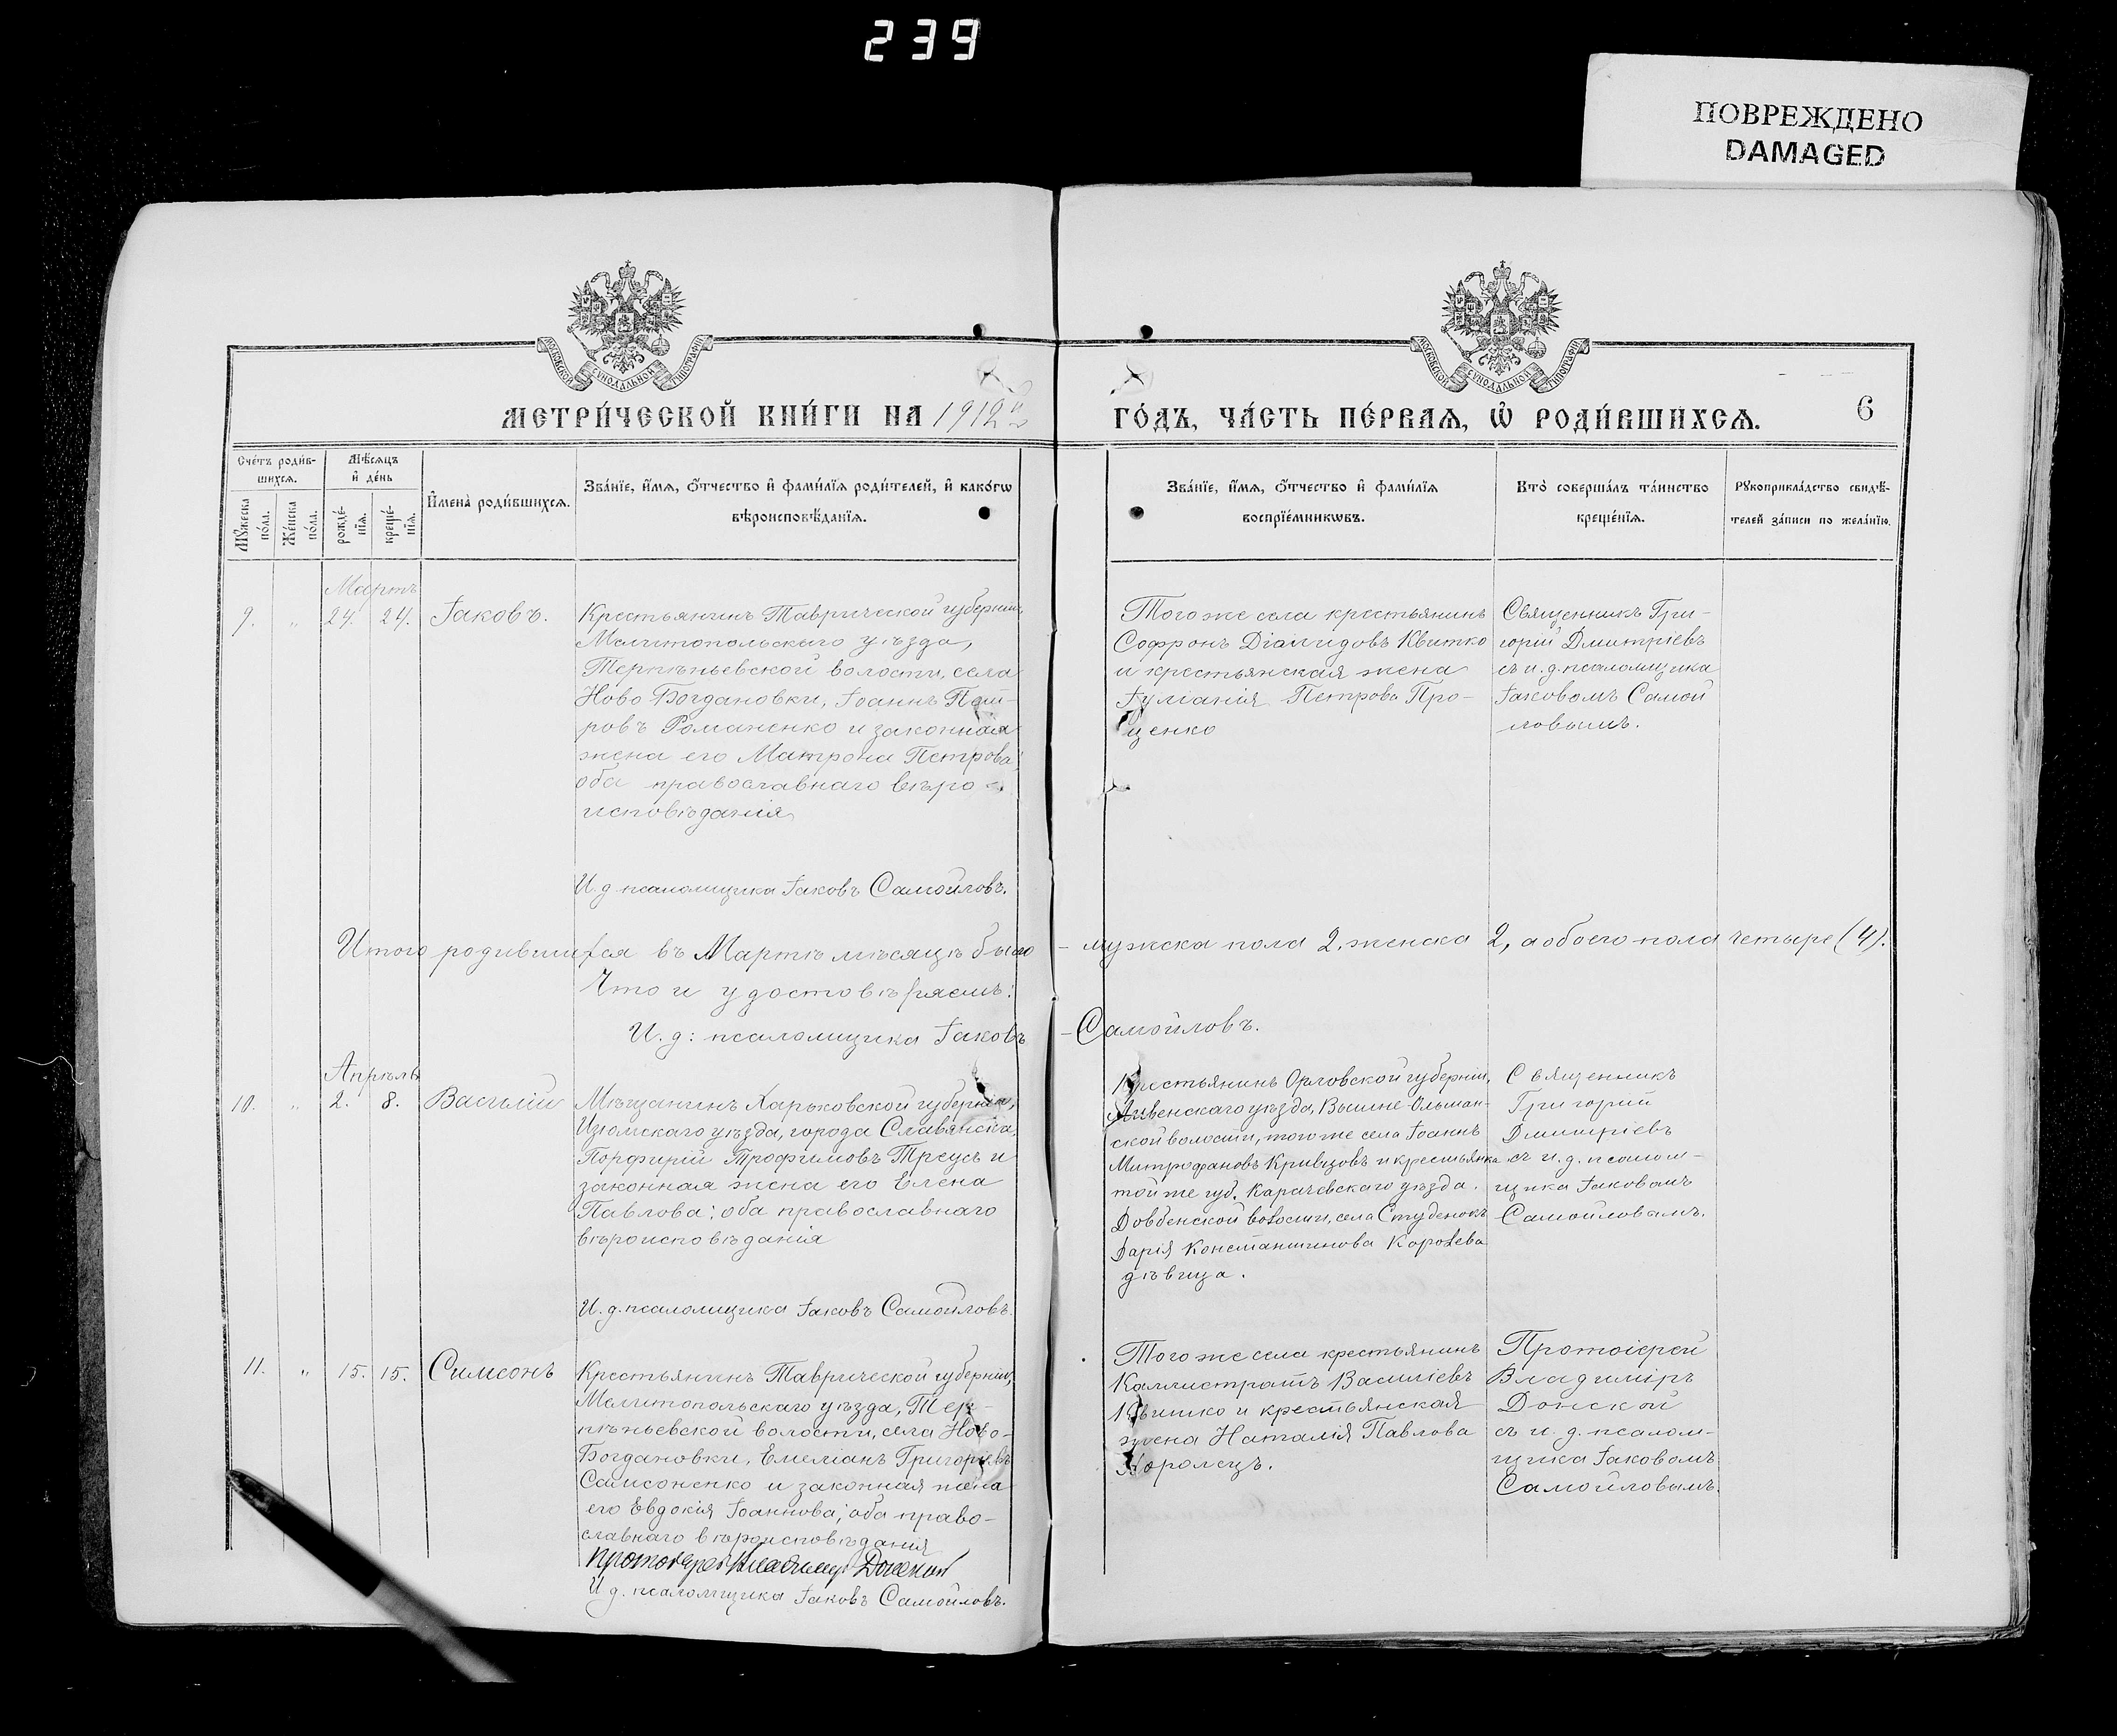 239
ПОВРЕЖДЕНО
DAMAGED
МОСКОВСКОЙ СѴНОДАЛЬНОЙ ТИПОГРАФІИ
МОСКОВСКОЙ СѴНОДАЛЬНОЙ ТИПОГРАФІИ
МЕТРИ́ЧЕСКОЙ КНИ́ГИ НА 1912й
ГО́ДЪ, ЧА́СТЬ ПЕ́РВАѦ, Ѡ҆ РОДИ́ВШИХСѦ.
6
Сче́тъ роди́в-
шихсѧ.
Мꙋ́жеска по́ла.
Же́нска по́ла.
Мѣ́сѧцъ
и҆ де́нь
рожде́-нїѧ.
креще́-нїѧ.
И҆мена̀ роди́вшихсѧ.
Зва́нїе, и҆́мѧ, ѻ҆́тчество и҆ фами́лїѧ роди́телей, и҆ како́гѡ
вѣроисповѣ́данїѧ.
Зва́нїе, и҆́мѧ, ѻ҆́тчество и҆ фами́лїѧ
воспрїе́мникѡвъ.
Кто̀ соверша́лъ та́инство
креще́нїѧ.
Рꙋкоприкла́дство свидѣ́-
телей за́писи по жела́нїю.
Мартъ
9. " 24. 24. Іаковъ.
Крестьянинъ Таврической губерніи
Мелитопольскаго уѣзда,
Терпѣньевской волости, села
Ново Богдановки, Іоаннъ Пет-
ровъ Романенко и законная
жена его Матрона Петрова;
оба православнаго вѣро-
исповѣданія
И. д. псаломщика Іаковъ Самойловъ.
Того же села крестьянинъ
Софронъ Діамидовъ Квитко
и крестьянская жена
Іуліанія Петрова Про-
ценко
Священникъ Гри-
горій Дмитріевъ
съ и. д. псаломщика
Іаковомъ Самой
ловымъ.
Итого родившихся въ Мартѣ мѣсяцѣ было - мужска пола 2, женска 2, а обоего пола четыре (4).
Что и удостовѣряемъ:
И. д: псаломщика Іаковъ - Самойловъ.
Апрѣль
10. " 2. 8. Василій
Мѣщанинъ Харьковской губерніи,
Изюмскаго уѣзда, города Славянска,
Порфирій Трофимовъ Треусъ и
законная жена его Елена
Павлова; оба православнаго
вѣроисповѣданія
И. д. псаломщика Іаковъ Самойловъ.
Крестьянинъ Орловской губерніи,
Ливенскаго уѣзда, Вышне-Ольшан-
ской волости, того же села Іоаннъ
Митрофановъ Кривцовъ и крестьянка
той же губ. Карачевскаго уѣзда.
Довбенской волости, села Студенокъ
Дарія Константинова Королева
дѣвица.
Священникъ
Григорій
Дмитріевъ
съ и. д. псалом-
щика Іаковомъ
Самойловымъ.
11. " 15. 15. Симеонъ
Крестьянинъ Таврической губерніи,
Мелитопольскаго уѣзда, Тер-
пѣньевской волости, села Ново-
Богдановки, Емеліанъ Григорьевъ
Самсоненко и законная жена
его Евдокія Іоаннова; оба право-
славнаго вѣроисповѣданія
Протоіерей Владиміръ Донской
И д. псаломщика Іаковъ Самойловъ.
Того же села крестьянинъ
Каллистратъ Василіевъ
Квитко и крестьянская
жена Наталія Павлова
Королецъ.
Протоіерей
Владиміръ
Донской
съ и. д. псалом-
щика Іаковомъ
Самойловымъ.